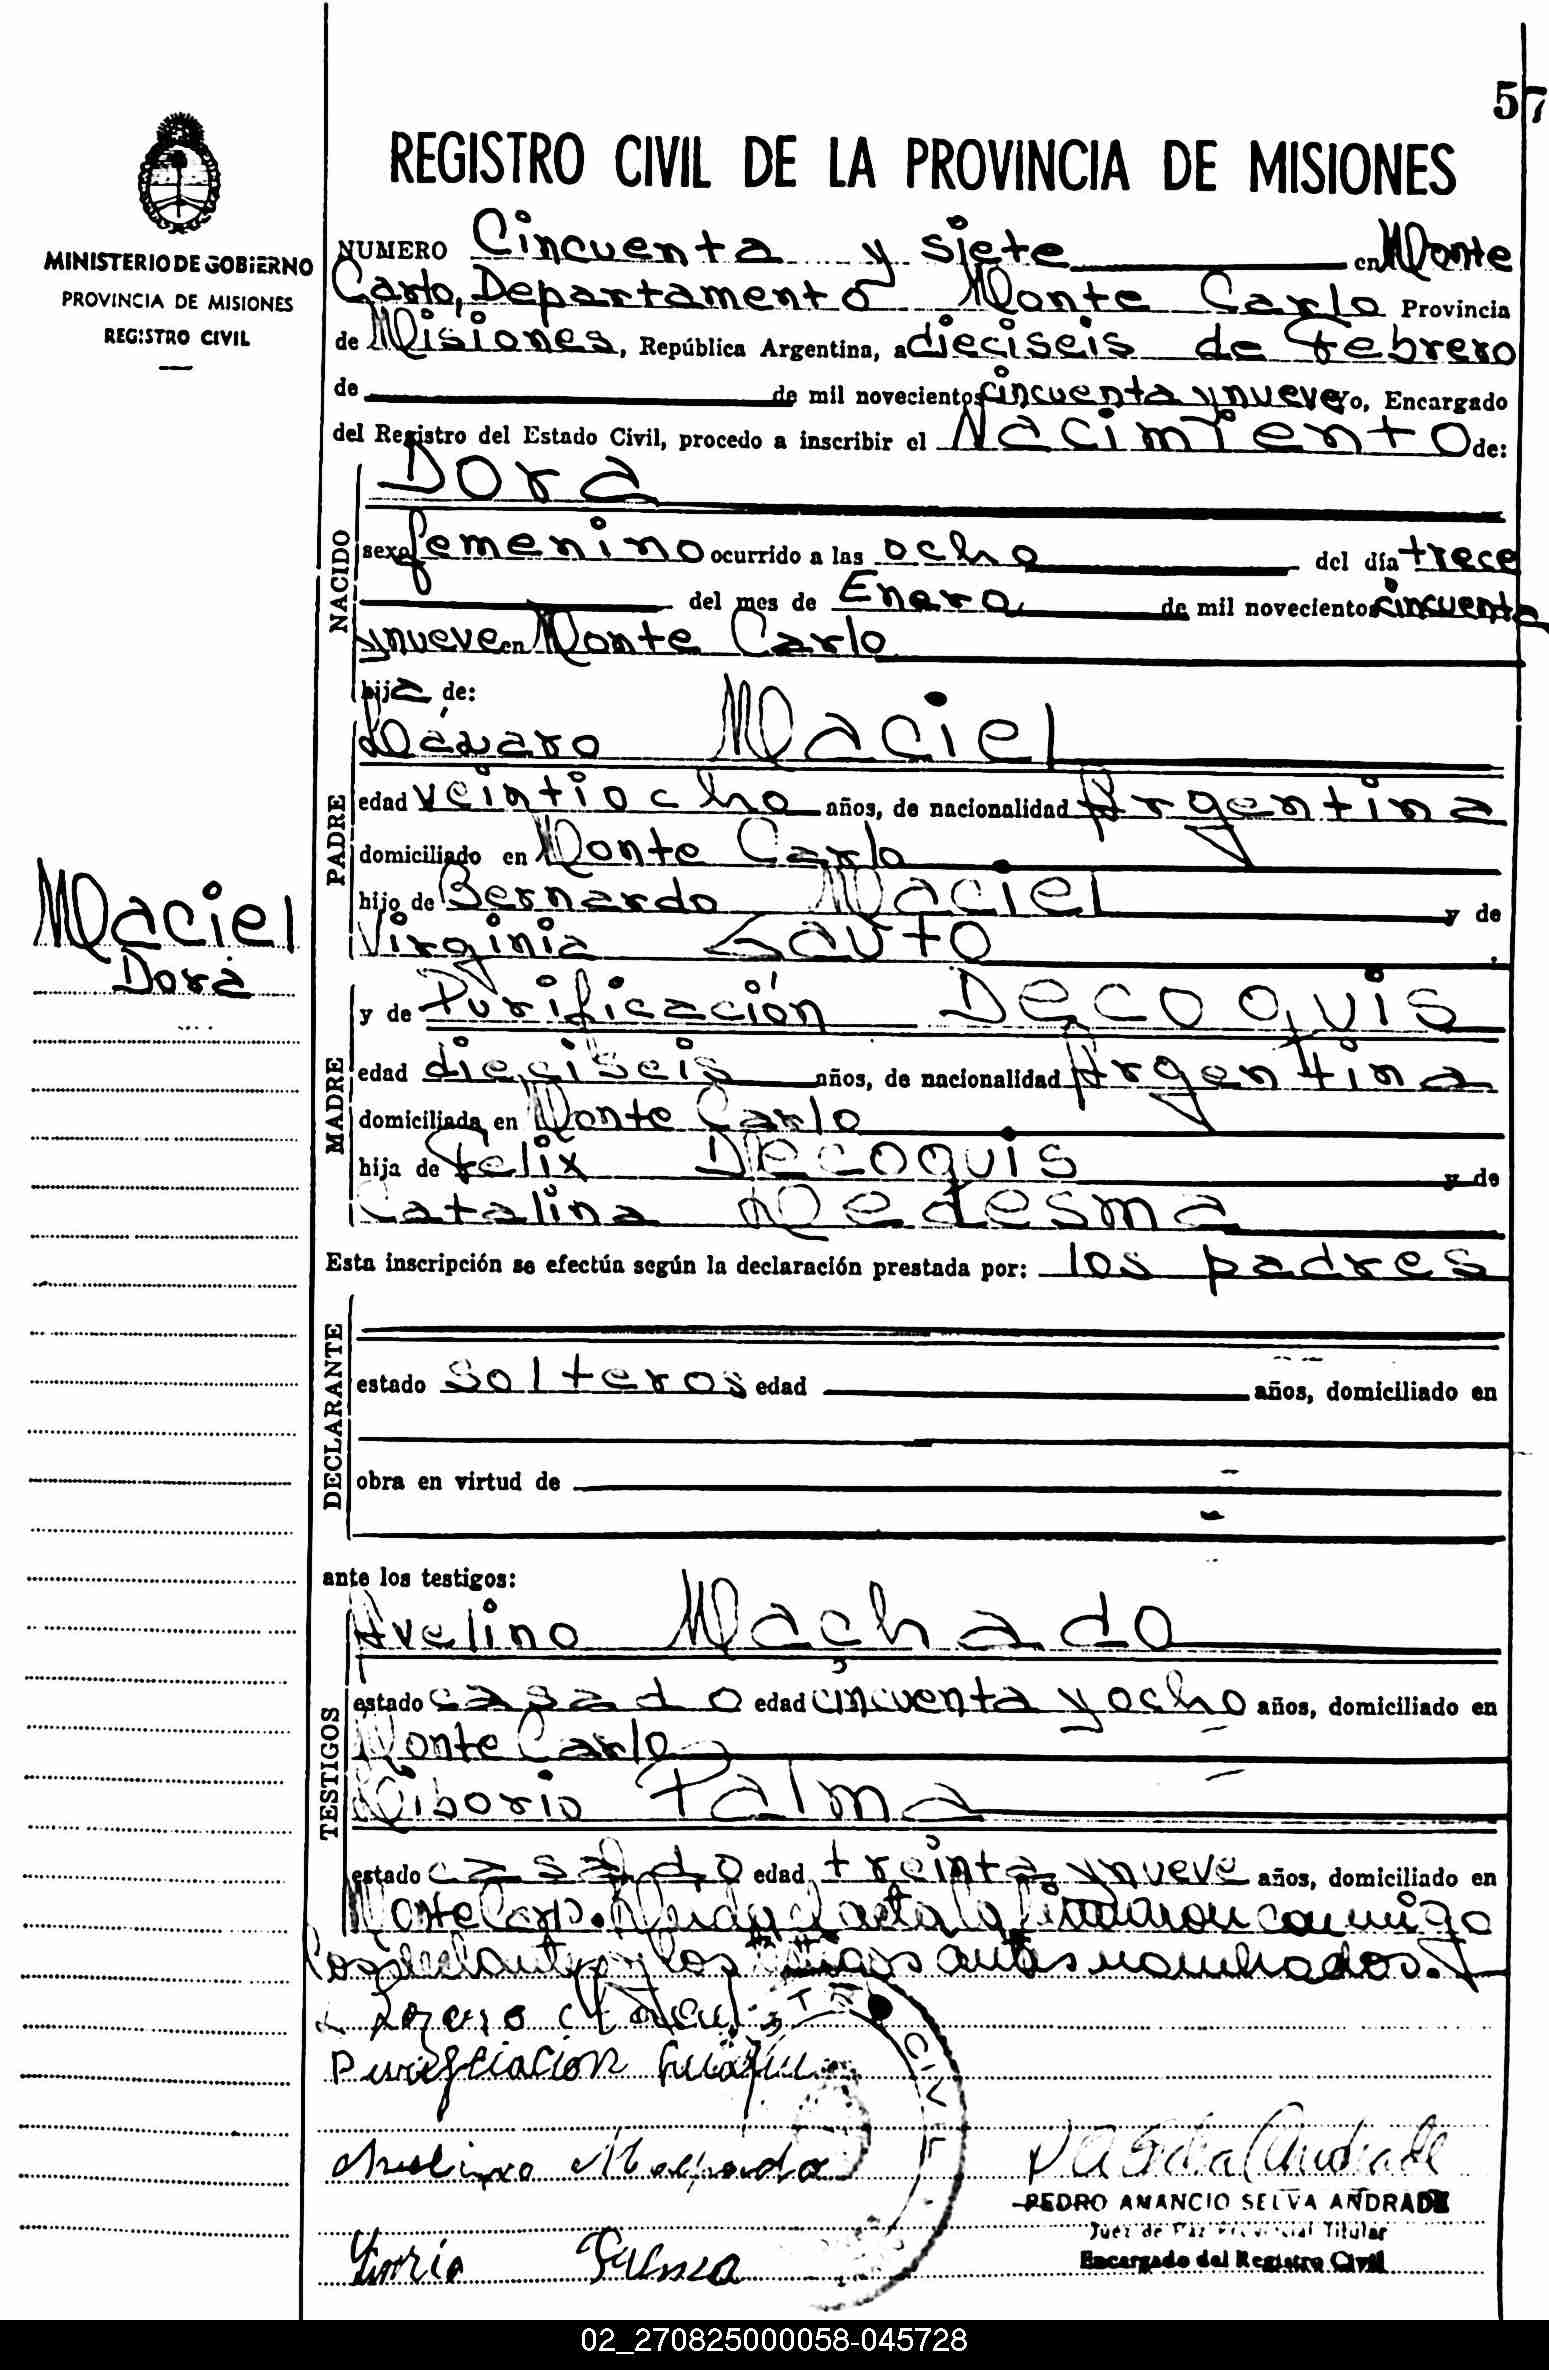 57
MINISTERIO DE GOBIERNO
PROVINCIA DE MISIONES
REGISTRO CIVIL
REGISTRO CIVIL DE LA PROVINCIA DE MISIONES
NUMERO Cincuenta y siete en Monte
Carlo, Departamento Monte Carlo Provincia
de Misiones, República Argentina, a dieciseis de Febrero
de de mil novecientos cincuenta y nueve Yo, Encargado
del Registro del Estado Civil, procedo a inscribir el Nacimiento de:
NACIDO
Dora
sexo femenino ocurrido a las ocho del día trece
del mes de Enero de mil novecientos cincuenta
y nueve en Monte Carlo
hija de:
PADRE
Lázaro Maciel
edad veintiocho años, de nacionalidad Argentina
domiciliado en Monte Carlo
hijo de Bernardo Maciel y de
Virginia Sauto
Maciel
Dora
MADRE
y de Purificación Decoquis
edad dieciseis años, de nacionalidad Argentina
domiciliada en Monte Carlo
hija de Felix Decoquis y de
Catalina Ledesma
Esta inscripción se efectúa según la declaración prestada por: los padres
DECLARANTE
estado solteros edad años, domiciliado en
obra en virtud de
ante los testigos:
TESTIGOS
Avelino Machado
estado casado edad cincuenta y ocho años, domiciliado en
Monte Carlo
Liborio Palma
estado casado edad treinta y nueve años, domiciliado en
Monte Carlo. Leida el acta la firmaron conmigo
los declarantes y los testigos antes nombrados.
Lazaro Maciel
Purificiacion
Avelino Machado
Palma
CIVIL
PEDRO AMANCIO SELVA ANDRADE
Juez de Paz Provincial Titular
Encargado del Registro Civil
02_270825000058-045728